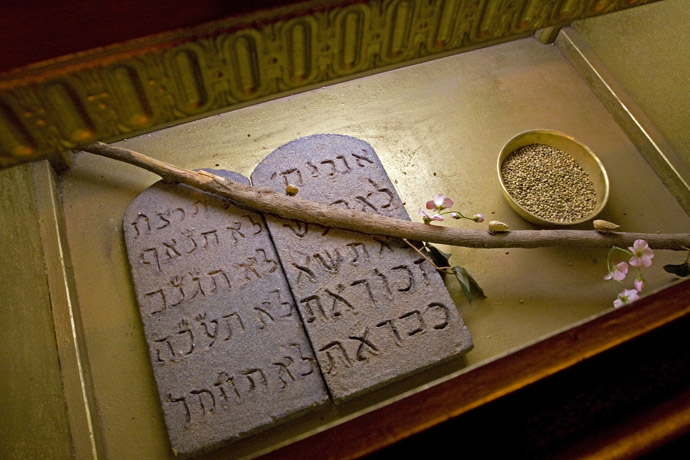 אנכי
לא
תשא
זכור את
כבד את
תרצח
לא תנאף
לא תגנב
לא תענה
לא תחמד